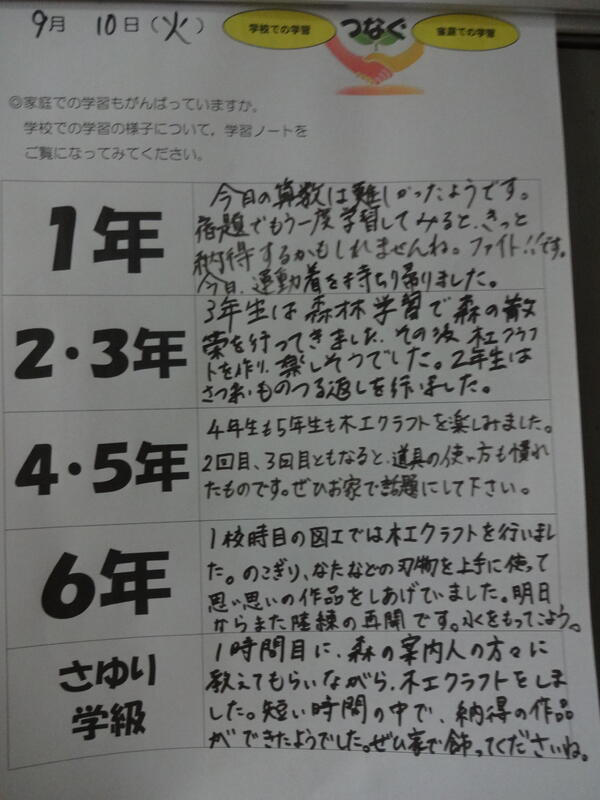 9月 10日(火)
学校での学習
つなぐ
家庭での学習
◎家庭での学習もがんばっていますか。
学校での学習の様子について,学習ノートを
ご覧になってみてください。
1年
今日の算数は難しかったようです。
宿題でもう一度学習してみると、きっと
納得するかもしれませんね。ファイト!!です。
今日、運動着を持ち帰りました。
2・3年
3年生は森林学習で森の散
策を行ってきました。その後木工クラフ
トを作り、楽しそうでした。2年生は
さつまいものつる返しを行いました。
4・5年
4年生も5年生も木工クラフトを楽しみました。
2回目、3回目ともなると、道具の使い方も慣れ
たものです。ぜひお家で話題にして下さい。
6年
1校時目の図工では木工クラフトを行いまし
た。のこぎり、なたなどの刃物を上手に使って
思い思いの作品をしあげていました。明日
からまた陸練の再開です。水をもってこよう。
さゆり
学級
1時間目に、森の案内人の方々に
教えてもらいながら、木工クラフトをしま
した。短い時間の中で、納得の作品
ができたようでした。ぜひ家で飾ってくださいね。